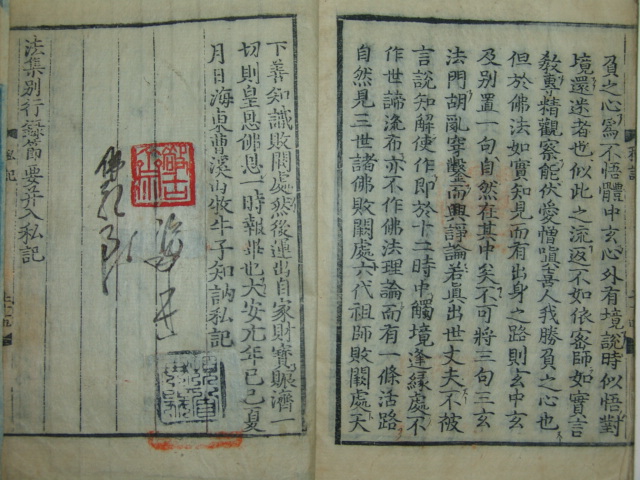 負之心爲不悟體中玄心外有境說時似悟對
境還迷者也似此之流返不如依密師如實言
敎專精觀察能伏愛憎嗔喜人我勝負之心也
但於佛法如實知見而有出身之路則玄中玄
及別置一句自然在其中矣不可將三句三玄
法門胡亂穿鑿而興諍論若眞出世丈夫不被
言說知解使作即於十二時中觸境逢緣處不
作世諦流布亦不作佛法理論而有一條活路
自然見三世諸佛敗闕處六代祖師敗闕處天
下善知識敗闕處然後運出自家財寶賑濟一
切則皇恩佛恩一時報畢也大安元年己巳夏
月日海東曹溪山牧牛子知訥私記
法集別行錄節要幷入私記